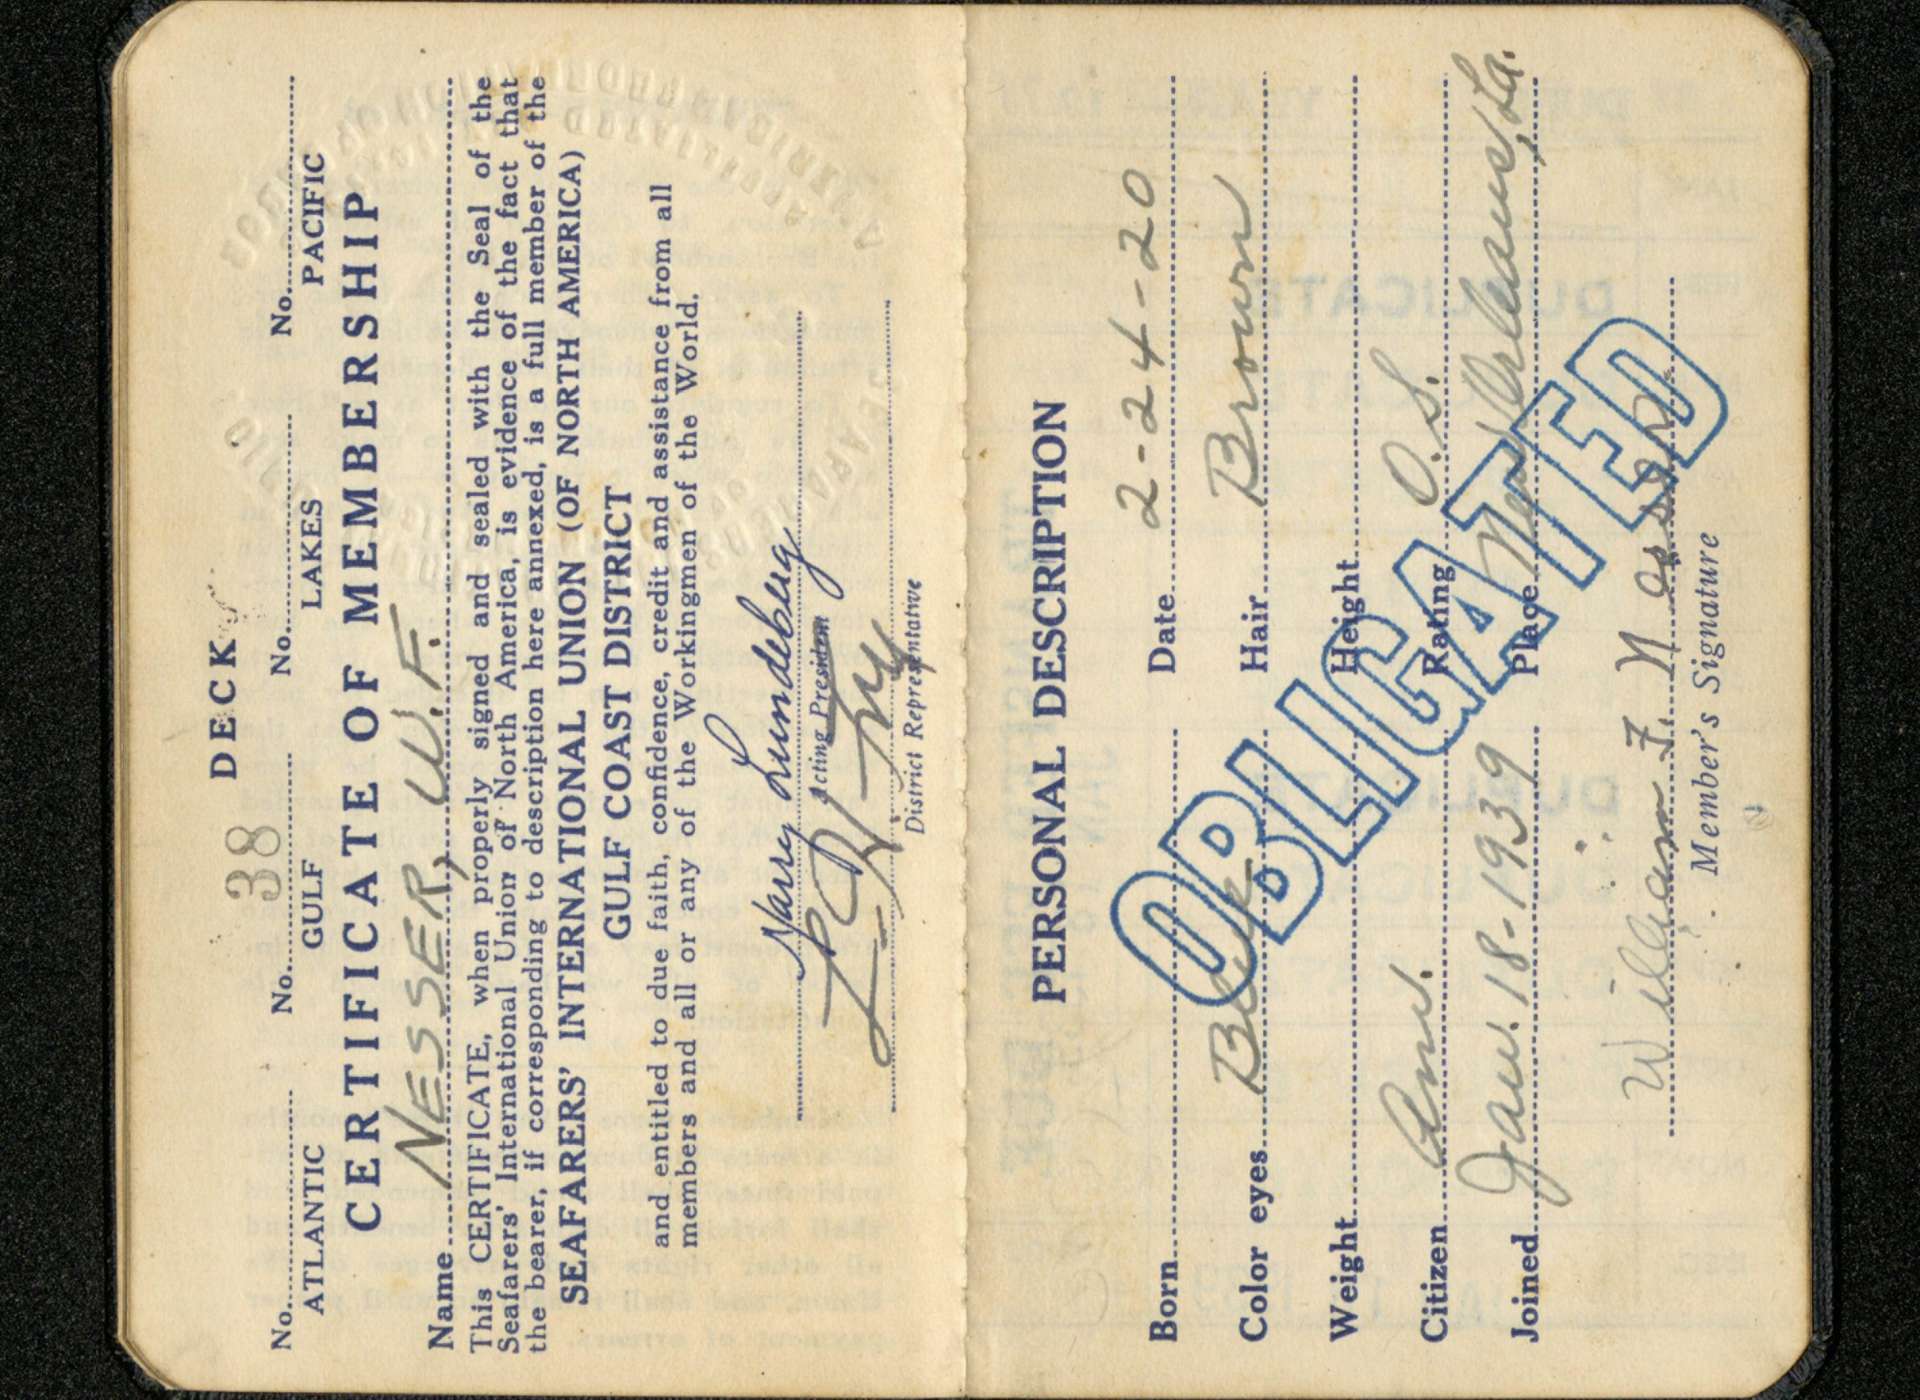 DECK
No. No. 38 No. No.
ATLANTIC GULF LAKES PACIFIC
CERTIFICATE OF MEMBERSHIP
Name NESSER, W.F.
This CERTIFICATE, when properly signed and sealed with the Seal of the
Seafarers' International Union of North America, is evidence of the fact that
the bearer, if corresponding to description here annexed, is a full member of the
SEAFARERS' INTERNATIONAL UNION (OF NORTH AMERICA)
GULF COAST DISTRICT
and entitled to due faith, confidence, credit and assistance from all
members and all or any of the Workingmen of the World.
Harry Lundeberg
Acting President
District Representative
PERSONAL DESCRIPTION
Born Date 2-24-20
Color eyes Blue Hair Brown
Weight Height
Citizen Am. Rating O.S.
Joined Jan. 18-1939 Place New Orleans, La.
OBLIGATED
William F. Nesser
Member's Signature